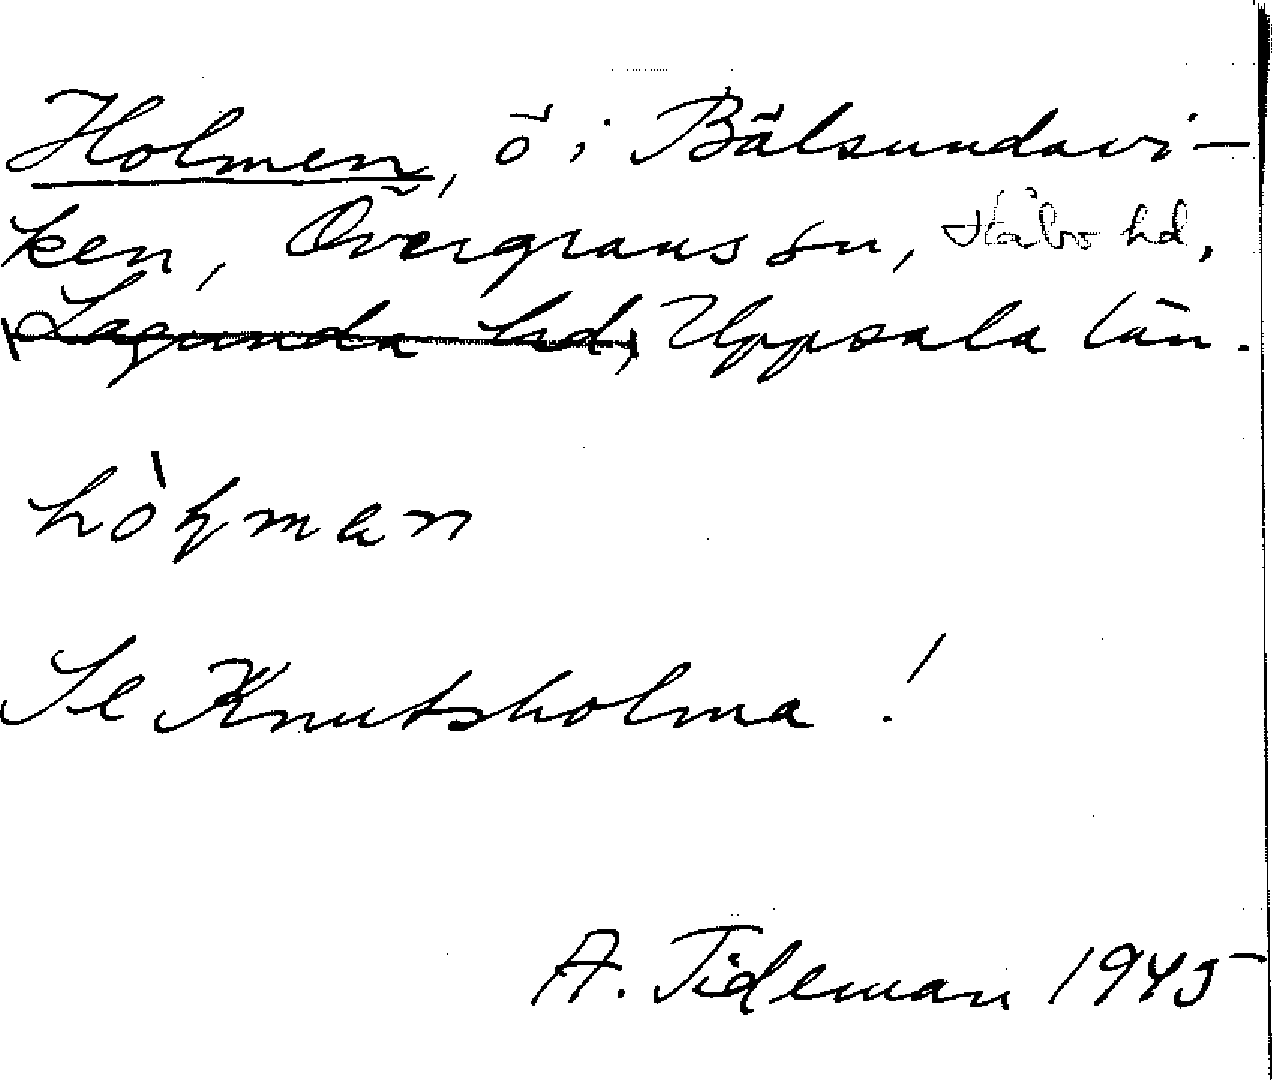 Holmen, ö i Bälsundavi-
ken, Övergrans sn, Håbo hd,
Lagunda hd, Uppsala län.
Se Knutsholma !
A. Tideman 1945